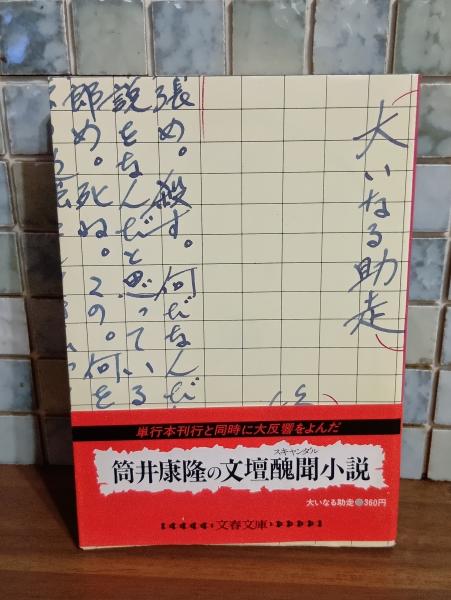 大いなる助走
張め。殺す。何だなんだ
説をなんだと思っている
郎め。死ね。この。何を
単行本刊行と同時に大反響をよんだ
スキャンダル
筒井康隆の文壇醜聞小説
大いなる助走●360円
文春文庫